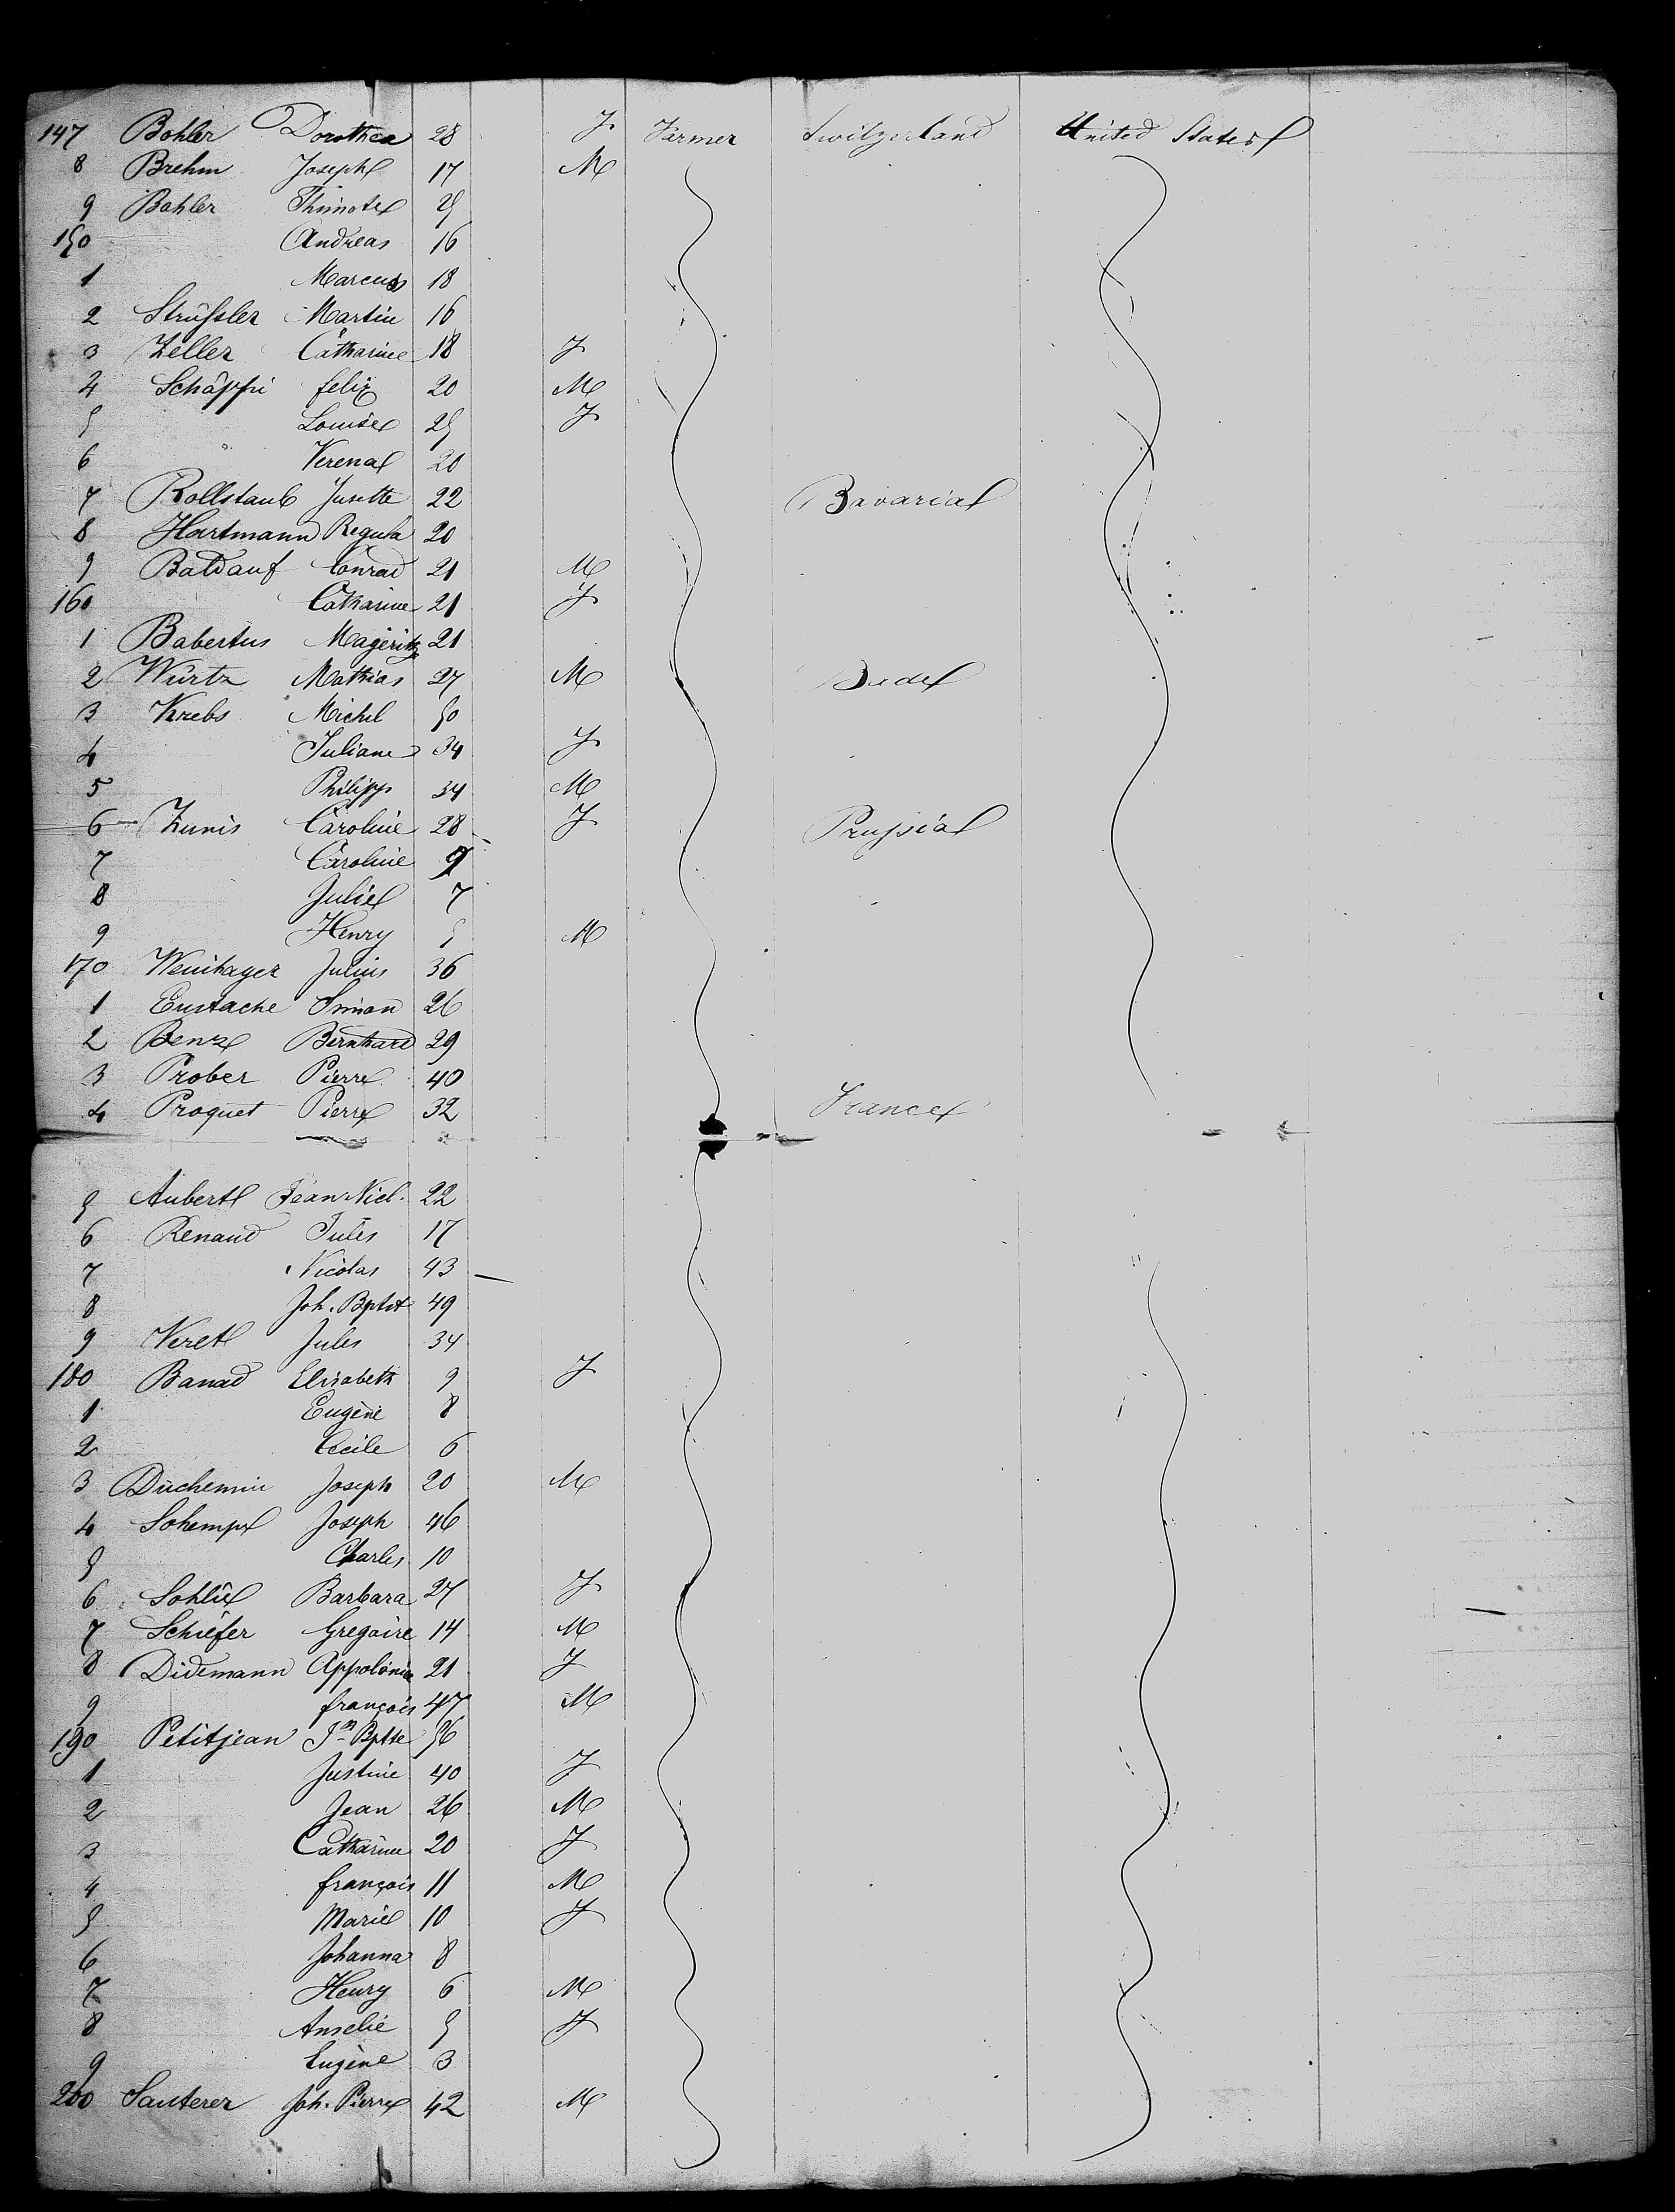 147 Bohler Dorothea 28 F Farmer Switzerland United States
8 Brehm Joseph 17 M
9 Bohler Thimote 25
150 Andreas 16
1 Marcus 18
2 Strüssler Martin 16
3 Zeller Catharine 18 F
4 Schäppi felix 20 M
5 Louise 25 F
6 Verena 20
7 Rollstaub Jusette 22 Bavaria
8 Hartmann Regula 20
9 Baldauf Conrad 21 M
160 Catharine 21 F
1 Babertus 21
2 Würtz Mathias 27 M Bade
3 Krebs Michel 50
4 Juliane 34 F
5 Philipp 34 M
6 Zunis Caroline 28 F Prussia
7 Caroline 9
8 Julie 7
9 Henry 5 M
170 Weinhager Julius 36
1 Eustache Simon 26
2 Benz Bernhard 29
3 Prober Pierre 40
4 Proquet Pierre 32 France
5 Aubert Jean Nicl. 22
6 Renaud Jules 17
7 Nicolas 43
8 Joh. Bptst 49
9 Veret Jules 34
180 Banad Elisabeth 9 F
1 Eugène 8
2 Cecile 6
3 Düchemin Joseph 20 M
4 Schempf Joseph 46
5 Charles 10
6 Sohlie Barbara 27 F
7 Schiefer Gregoire 14 M
8 Didemann Appolonia 21 F
9 françois 47 M
190 Petitjean Jn Bptte 56
1 Justine 40 F
2 Jean 26 M
3 Catharine 20 F
4 françois 11 M
5 Marie 10 F
6 Johanna 8
7 Henry 6 M
8 Amelie 5 F
9 Eugène 3
200 Sauterer Joh. Pierre 42 M